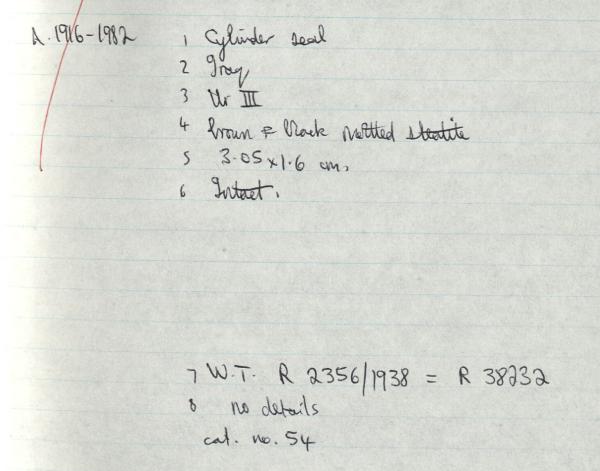 A. 1916-1982 1 Cylinder seal
2 Iraq
3 Ur III
4 brown & black mottled steatite
5 3.05 x 1.6 cm.
6 Intact.
7 W.T. R 2356/1938 = R 38232
8 no details
cat. no. 54